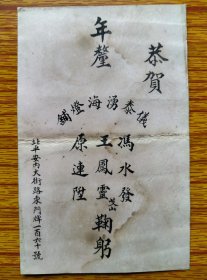 恭賀
年釐
儀泰湧海燈鋪
馮水發
王鳳靈
原連陞
仝鞠躬
北平安內大街路東門牌一百六十號